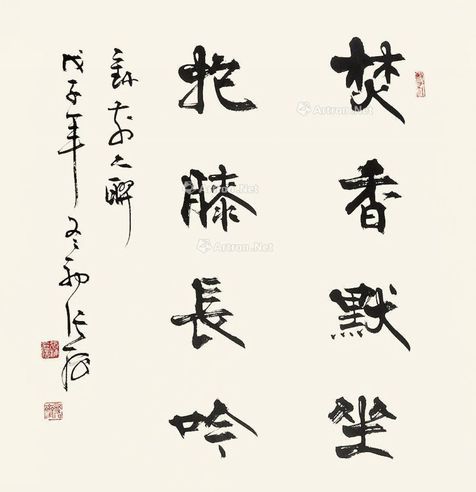 焚香默坐
抱膝長吟
之聯
戊子年冬初張
Artron.Net
Artron.Net
Artron.Net